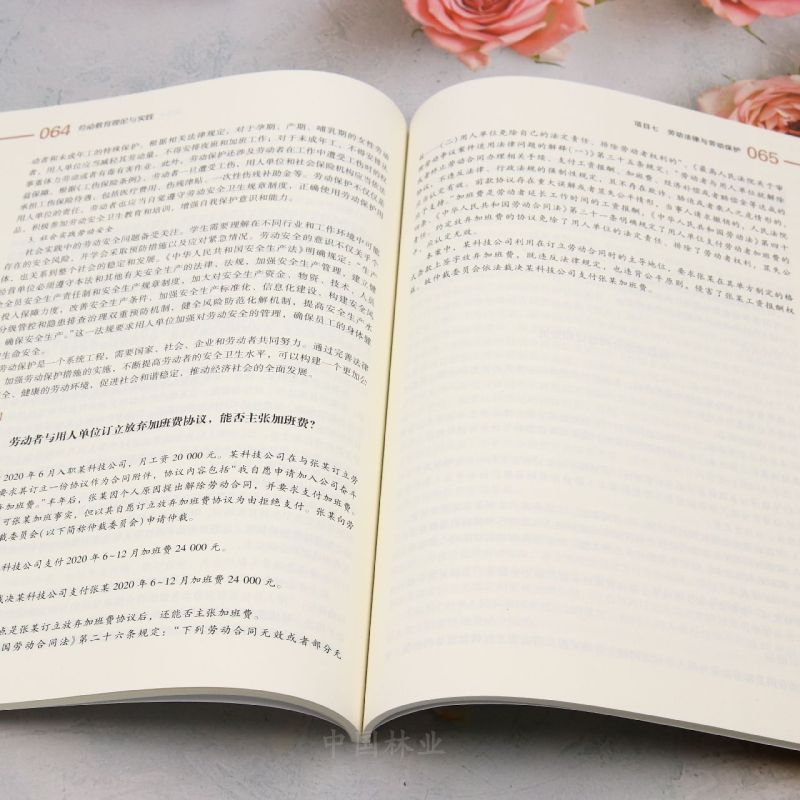 064 劳动教育理论与实践
动者和未成年工的特殊保护。根据相关法律规定，对于孕期、产期、哺乳期的女性劳动
者，用人单位应当减轻其劳动量，不得安排夜班和加班工作；对于未成年工，不得安排从
事重体力劳动或者有毒有害作业。此外，劳动保护还涉及劳动者在工作中遭受工伤时的权
益保障。根据《工伤保险条例》，劳动者一旦遭受工伤，用人单位和社会保险机构应当依法
承担工伤保险待遇，包括医疗费用、伤残津贴、一次性伤残补助金等。劳动保护不仅仅是
用人单位的责任，劳动者也应当自觉遵守劳动安全卫生规章制度，正确使用劳动保护用
品，积极参加劳动安全卫生教育和培训，增强自我保护意识和能力。
3. 社会实践劳动安全
社会实践中的劳动安全问题备受关注。学生需要理解在不同行业和工作环境中可能
存在的安全风险，并学会采取预防措施以及应对紧急情况。劳动安全的意识不仅关乎个
体，也关系到整个社会的稳定和发展。《中华人民共和国安全生产法》明确规定：“生产
经营单位必须遵守本法和其他有关安全生产的法律、法规，加强安全生产管理，建立健
全全员安全生产责任制和安全生产规章制度，加大对安全生产资金、物资、技术、人员
投入保障力度，改善安全生产条件，加强安全生产标准化、信息化建设，构建安全风
分级管控和隐患排查治理双重预防机制，健全风险防范化解机制，提高安全生产水
，确保安全生产。”这一法规要求用人单位加强对劳动安全的管理，确保员工的身体健
生命安全。
劳动保护是一个系统工程，需要国家、社会、企业和劳动者共同努力。通过完善法律
加强劳动保护措施的实施，不断提高劳动者的安全卫生水平，可以构建一个更加公
全、健康的劳动环境，促进社会和谐稳定，推动经济社会的全面发展。
劳动者与用人单位订立放弃加班费协议，能否主张加班费？
2020 年 6 月入职某科技公司，月工资 20 000 元。某科技公司在与张某订立劳
要求其订立一份协议作为合同附件，协议内容包括“我自愿申请加入公司奋斗
弃加班费。”半年后，张某因个人原因提出解除劳动合同，并要求支付加班费。
可张某加班事实，但以其自愿订立放弃加班费协议为由拒绝支付。张某向劳
裁委员会（以下简称仲裁委员会）申请仲裁。
科技公司支付 2020 年 6~12 月加班费 24 000 元。
裁决某科技公司支付张某 2020 年 6~12 月加班费 24 000 元。
点是张某订立放弃加班费协议后，还能否主张加班费。
国劳动合同法》第二十六条规定：“下列劳动合同无效或者部分无
项目七 劳动法律与劳动保护 065
……（二）用人单位免除自己的法定责任、排除劳动者权利的”，《最高人民法院关于审
理劳动争议案件适用法律问题的解释（一）》第三十五条规定：“劳动者与用人单位就解除
或者终止劳动合同办理相关手续、支付工资报酬、加班费、经济补偿或者赔偿金等达成的
协议，不违反法律、行政法规的强制性规定，且不存在欺诈、胁迫或者乘人之危情形的，
应当认定有效。前款协议存在重大误解或者显失公平情形，当事人请求撤销的，人民法院
应予支持。”加班费是劳动者延长工作时间的工资报酬，《中华人民共和国劳动法》第四十
《中华人民共和国劳动合同法》第三十一条明确规定了用人单位支付劳动者加班费的
约定放弃加班费的协议免除了用人单位的法定责任、排除了劳动者权利，显失公
应认定无效。
本案中，某科技公司利用在订立劳动合同时的主导地位，要求张某在其单方制定的格
式条款上签字放弃加班费，既违反法律规定，也违背公平原则，侵害了张某工资报酬权
。故仲裁委员会依法裁决某科技公司支付张某加班费。
中国林业